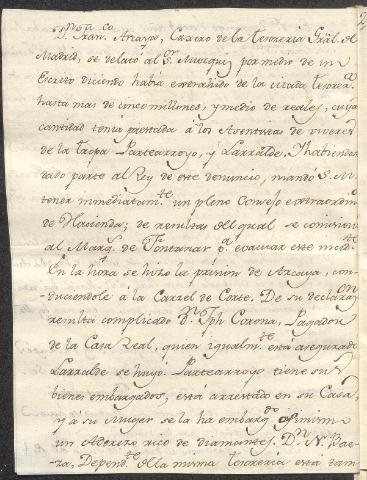 Dn. Fran.co Arzayo, Caxero de la tesoreria Gràl. de
Madrid, se delato al Sr. Muzquiz por medio de un
Escrito diciendo habia extrahido de la citada tesorera.
hasta mas de cinco millones, y medio de reales, cuya
cantidad tenia prestada à los Asentistas de viveres
de la tropa Partearroyo, y Larralde. Y habiendo
dado parte al Rey de este denuncio, mandó S. M.
tener inmediatam.te un pleno Consejo extraordin.o
de Hacienda; de resultas del qual se comision
al Marq.s de Fontanar p.a evacuar este incid.te
En la hora se hizo la prision de Arzaya, con-
-duciendole à la Carzel de Corte. De su declaraon
resulta complicado Dn. Jph Corona, Pagador
de la Casa Real, quien igualm.te está asegurado
Larralde se huyó. Partearroyo tiene sus
bienes embargados, está arrestado en su Casa,
y a su Muger se la ha embarg.do asimism
un Aderezo rico de diamantes. Dn. N. Bae-
za, Depend.te de la misma tesoreria está tam